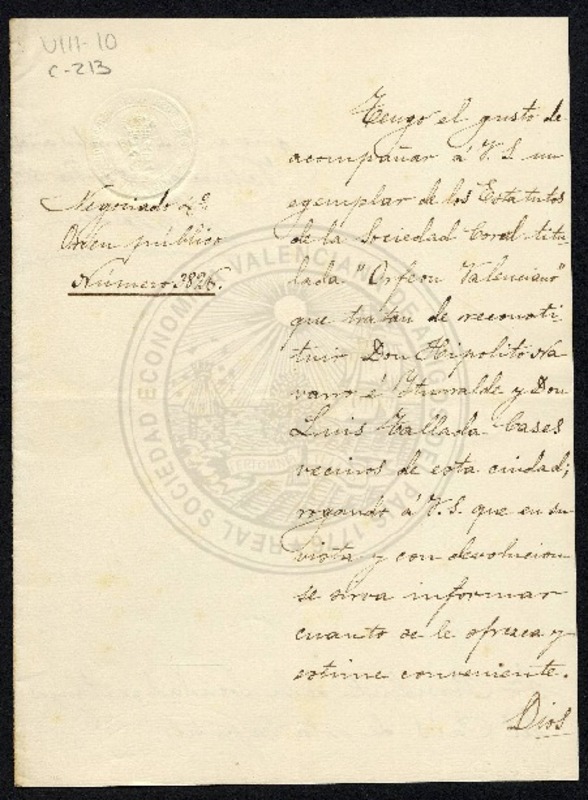 VIII-10
C-213
Negociado de
Orden público
Número 3826.
Tengo el gusto de
acompañar á V.S. un
egemplar de los Estatutos
de la Sociedad Coral titu-
lada "Orfeon Valenciano"
que tratan de reconsti-
tuir Don Hipolito Na-
varro é Yturralde y Don
Luis Tallada Cases
vecinos de esta ciudad;
rogando á V.S. que en su
vista y con devolucion
se sirva informar
cuanto se le ofrezca y
estime conveniente.
Dios
REAL SOCIEDAD ECONOMICA VALENCIANA DE AMIGOS DEL PAIS 1776